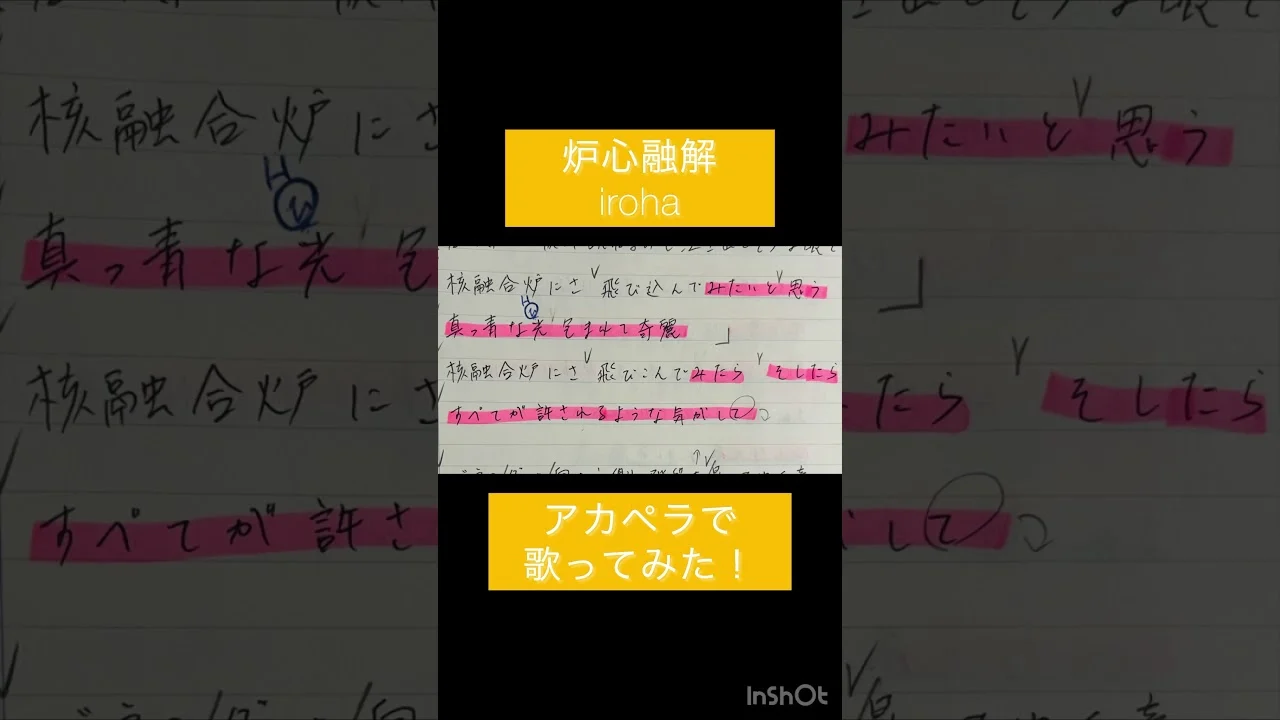 炉心融解
iroha
核融合炉にさ 飛び込んでみたいと思う
真っ青な光 包まれて奇麗
核融合炉にさ 飛びこんでみたら そしたら
すべてが許されるような気がして
アカペラで
歌ってみた！
InShOt